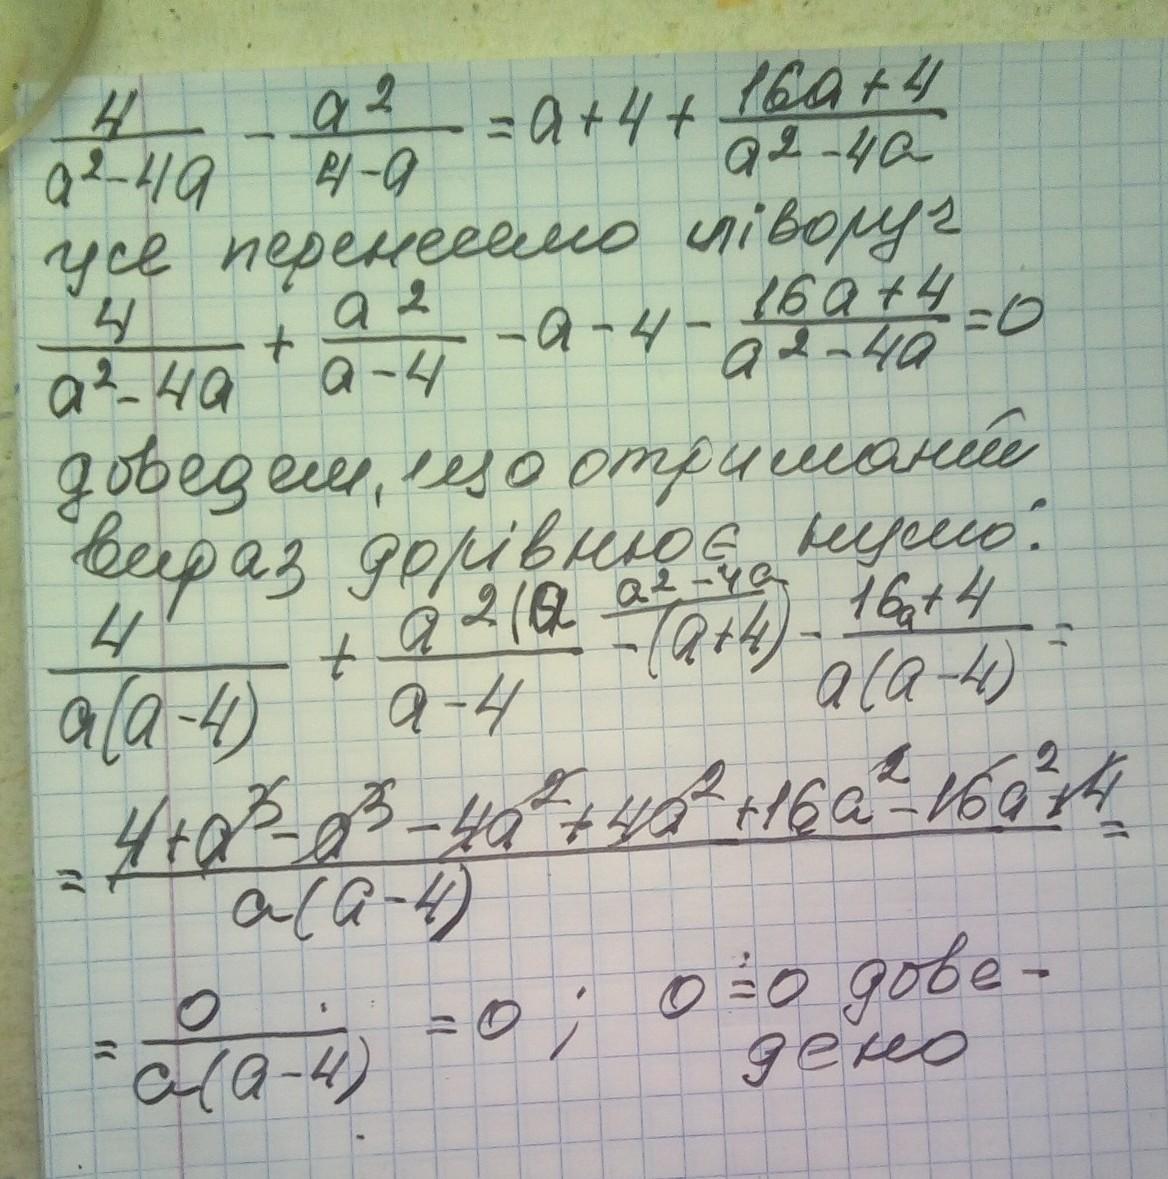 4/(a²-4a) - a²/(4-a) = a+4+ (16a+4)/(a²-4a)
усе перенесемо ліворуч
4/(a²-4a) + a²/(a-4) - a - 4 - (16a+4)/(a²-4a) = 0
доведем, що отриманий
вираз дорівнює нулю:
4/(a(a-4)) + a²(a/(a-4) a²-4a/ -(a+4) - (16a+4)/(a(a-4)) =
= (4+a³-a³-4a²+4a²+16a²-16a²+4)/(a(a-4)) =
= 0/(a(a-4)) = 0 ; 0 = 0 дове-
дено